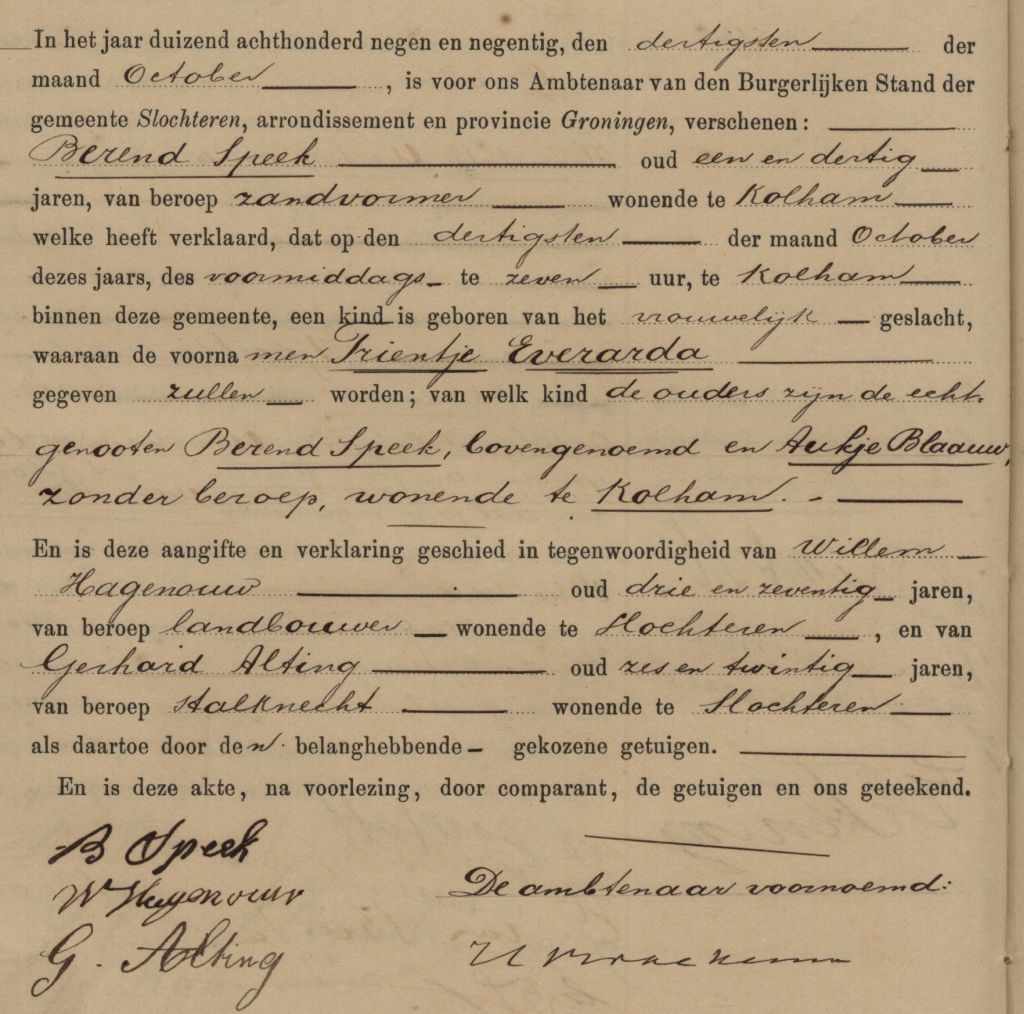 In het jaar duizend achthonderd negen en negentig, den dertigsten der
maand October, is voor ons Ambtenaar van den Burgerlijken Stand der
gemeente Slochteren, arrondissement en provincie Groningen, verschenen:
Berend Speek oud een en dertig
jaren, van beroep zandvormer wonende te Kolham
welke heeft verklaard, dat op den dertigsten der maand October
dezes jaars, des voormiddags te zeven uur, te Kolham
binnen deze gemeente, een kind is geboren van het vrouwelijk geslacht,
waaraan de voornamen Trientje Everarda
gegeven zullen worden; van welk kind de ouders zijn de echt-
genooten Berend Speek, bovengenoemd en Aukje Blaauw,
zonder beroep, wonende te Kolham.
En is deze aangifte en verklaring geschied in tegenwoordigheid van Willem
Hagenouw oud drie en zeventig jaren,
van beroep landbouwer wonende te Slochteren, en van
Gerhard Alting oud zes en twintig jaren,
van beroep stalknecht wonende te Slochteren
als daartoe door den belanghebbende gekozene getuigen.
En is deze akte, na voorlezing, door comparant, de getuigen en ons geteekend.
B Speek
W Hagenouw
De ambtenaar voornoemd:
G. Alting